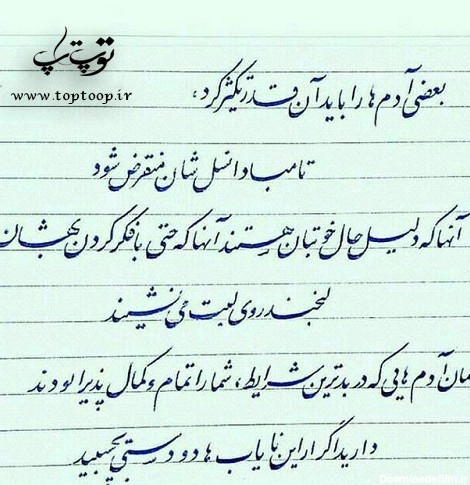 توپ تاپ
www.toptoop.ir
بعضی آدم ها را باید آن قدر تکثیر کرد،
تا مبادا نسل شان منقرض شود
آنها که دلیل حال خوبتان هستند آنها که حتی با فکر کردن بهشان
لبخند روی لبت می نشیند
مان آدم هایی که در بدترین شرایط، شما را تمام و کمال پذیرا بودند
دارید اگر از این نایاب ها دو دستی بچسبید